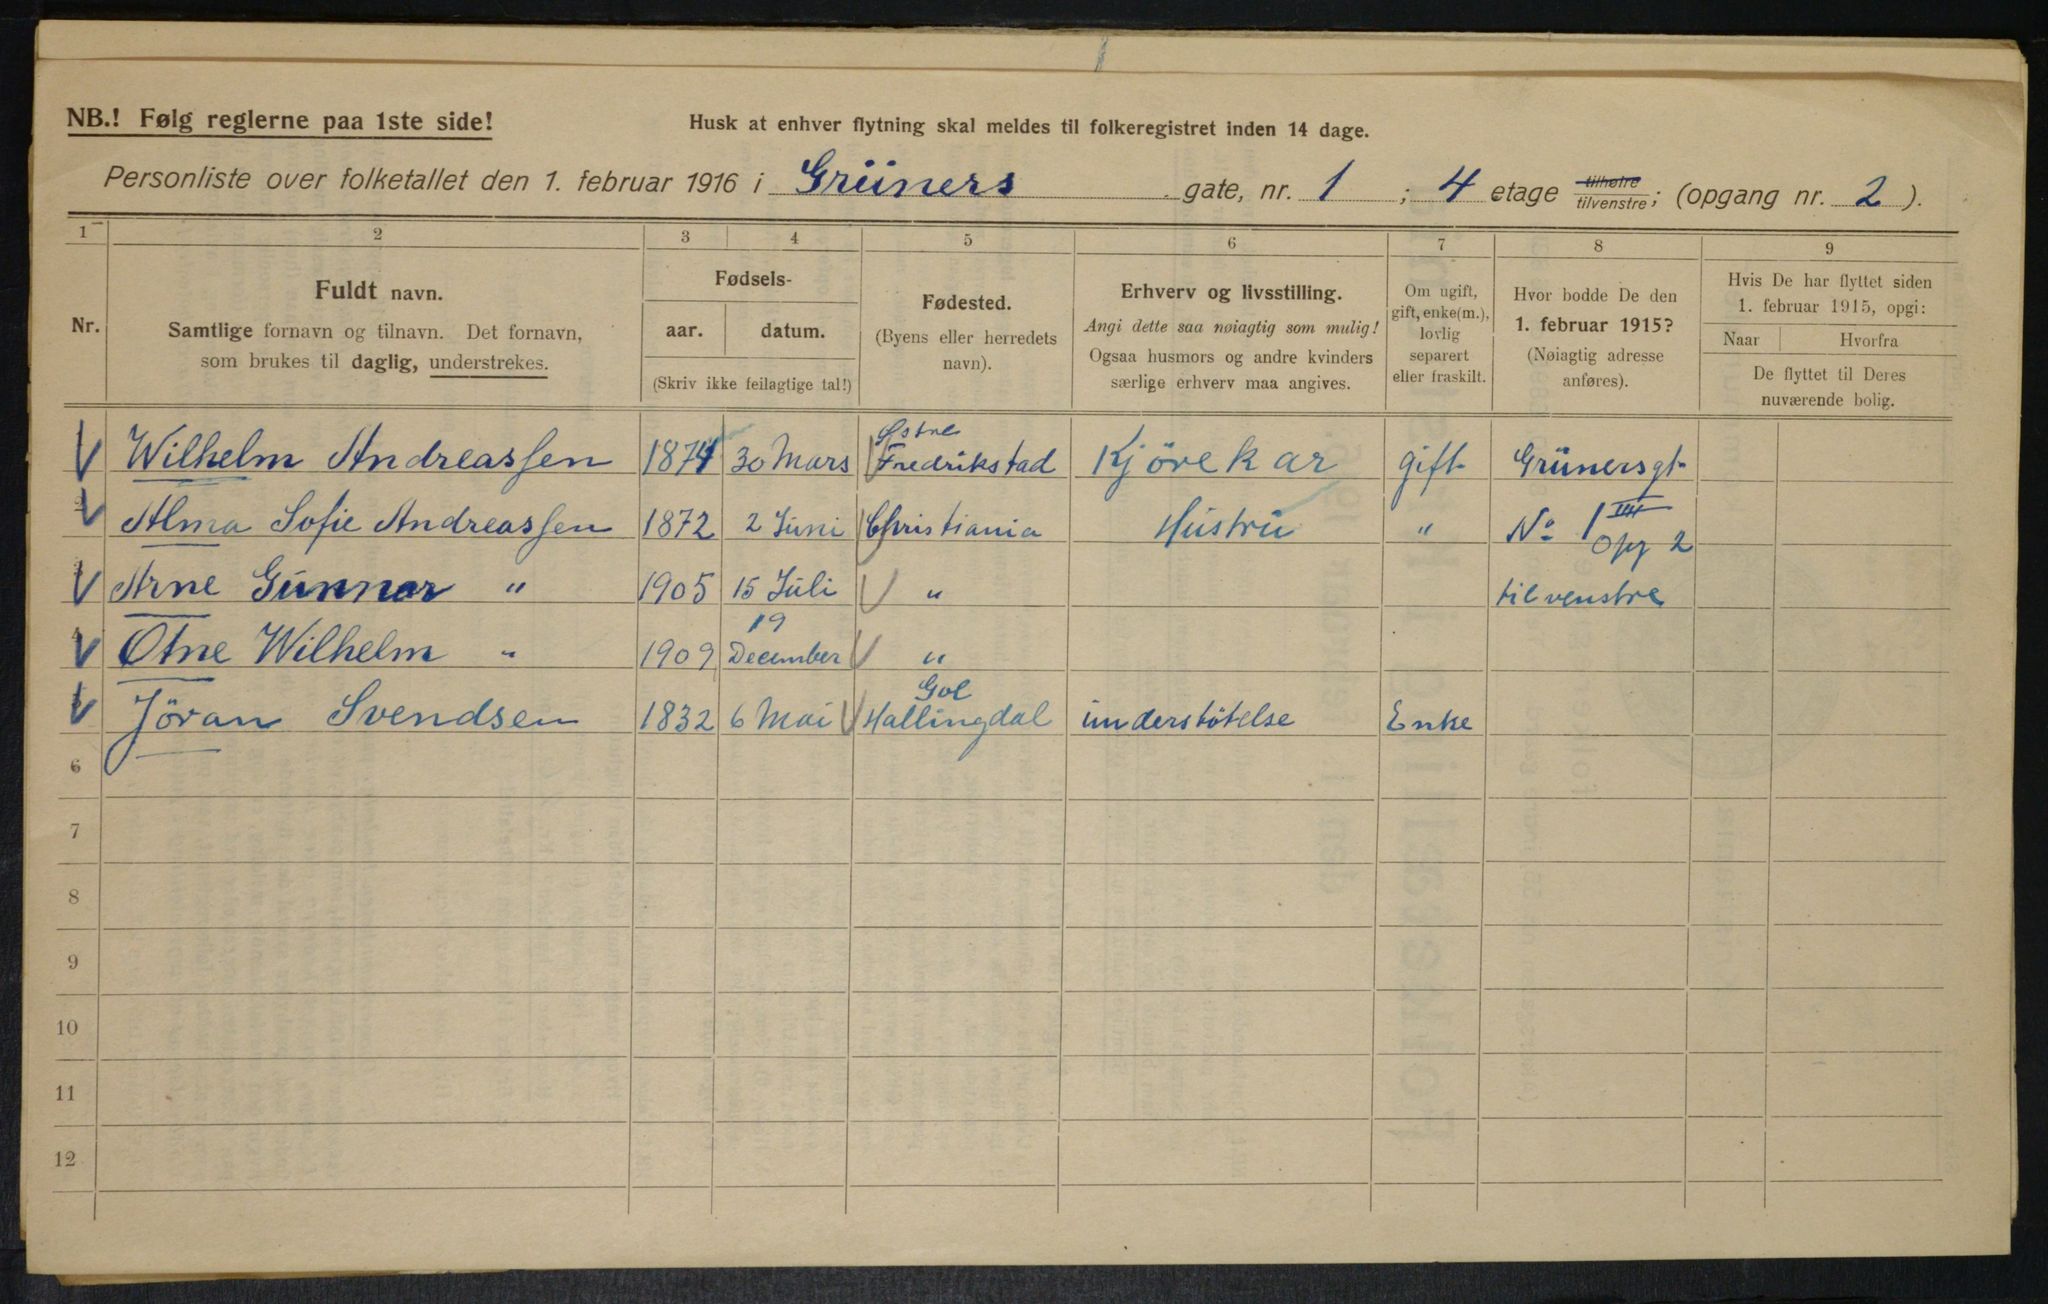 NB.! Følg reglerne paa 1ste side!
Husk at enhver flytning skal meldes til folkeregistret inden 14 dage.
Personliste over folketallet den 1. februar 1916 i Grüners gate, nr. 1 ; 4 etage tilhøire tilvenstre; (opgang nr. 2 ).
1 2 3 4 5 6 7 8 9
Nr.
Fuldt navn.
Samtlige fornavn og tilnavn. Det fornavn,
som brukes til daglig, understrekes.
Fødsels-
aar. datum.
(Skriv ikke feilagtige tal!)
Fødested.
(Byens eller herredets
navn).
Erhverv og livsstilling.
Angi dette saa nøiagtig som mulig!
Ogsaa husmors og andre kvinders
særlige erhverv maa angives.
Om ugift,
gift, enke(m.),
lovlig
separert
eller fraskilt.
Hvor bodde De den
1. februar 1915?
(Nøiagtig adresse
anføres).
Hvis De har flyttet siden
1. februar 1915, opgi:
Naar Hvorfra
De flyttet til Deres
nuværende bolig.
Wilhelm Andreassen 1874 30 Mars Østre Fredrikstad Kjörekar gift Grünersgt
Alma Sofie Andreassen 1872 2 Juni Christiania Hustru " No 1 IIII Opg 2
Arne Gunnar " 1905 15 Juli " tilvenstre
Wilhelm " 1909 19 December "
Jöran Svendsen 1832 6 Mai Gol Hallingdal understötelse Enke
6
7
8
9
10
11
12